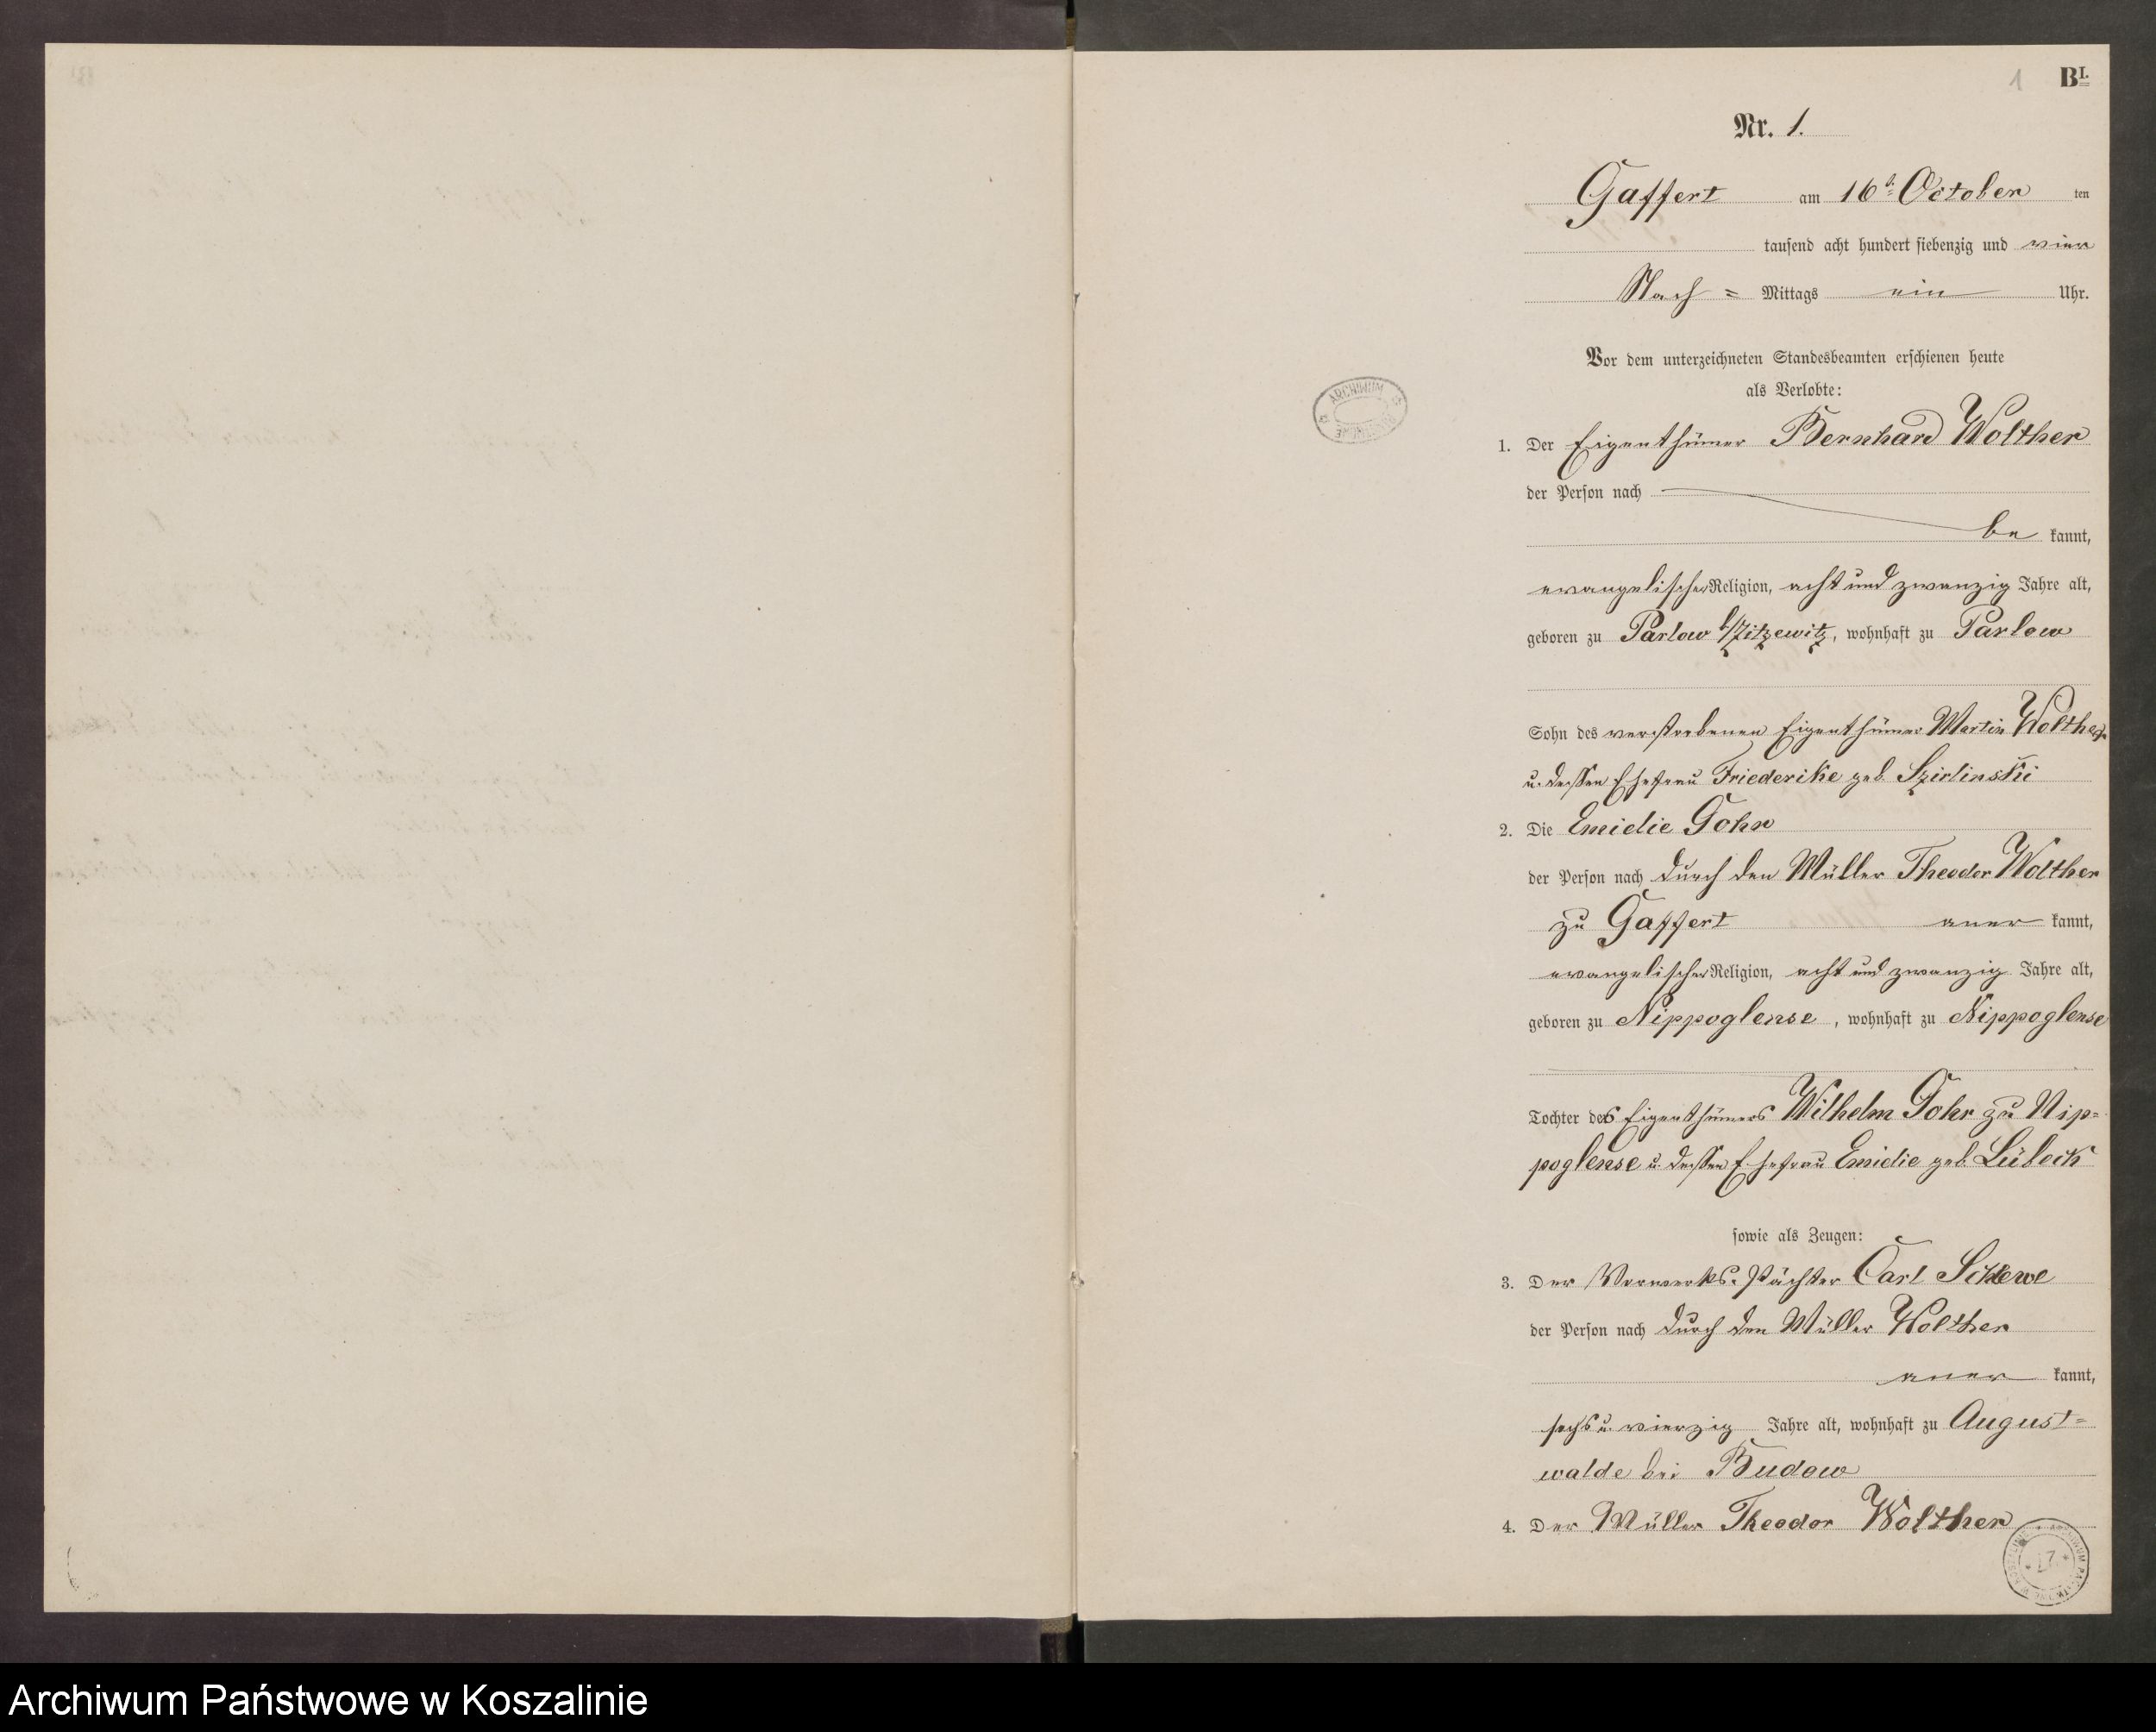 1 BI.
Nr. 1.
Gaffert am 16t October ten
tausend acht hundert siebenzig und vier
Nach = Mittags ein Uhr.
Vor dem unterzeichneten Standesbeamten erschienen heute
als Verlobte:
ARCHIWUM
1. Der Eigenthümer Bernhard Wolther
der Person nach
be kannt,
evangelischer Religion, acht und zwanzig Jahre alt,
geboren zu Parlow b/Zitzewitz, wohnhaft zu Parlow
Sohn des verstorbenen Eigenthümer Martin Wolther
u. dessen Ehefrau Friederike geb. Szirlinski
2. Die Emielie Gohr
der Person nach durch den Müller Theodor Wolther
zu Gaffert aner kannt,
evangelischer Religion, acht und zwanzig Jahre alt,
geboren zu Nippoglense, wohnhaft zu Nippoglense
Tochter des Eigenthümers Wilhelm Gohr zu Nip=
poglense u. dessen Ehefrau Emielie geb. Lübeck
sowie als Zeugen:
3. Der Vorwerks-Pächter Carl
der Person nach durch den Müller Wolther
aner kannt,
sechs u. vierzig Jahre alt, wohnhaft zu August=
walde bei Budow
4. Der Müller Theodor Wolther
Archiwum Państwowe w Koszalinie